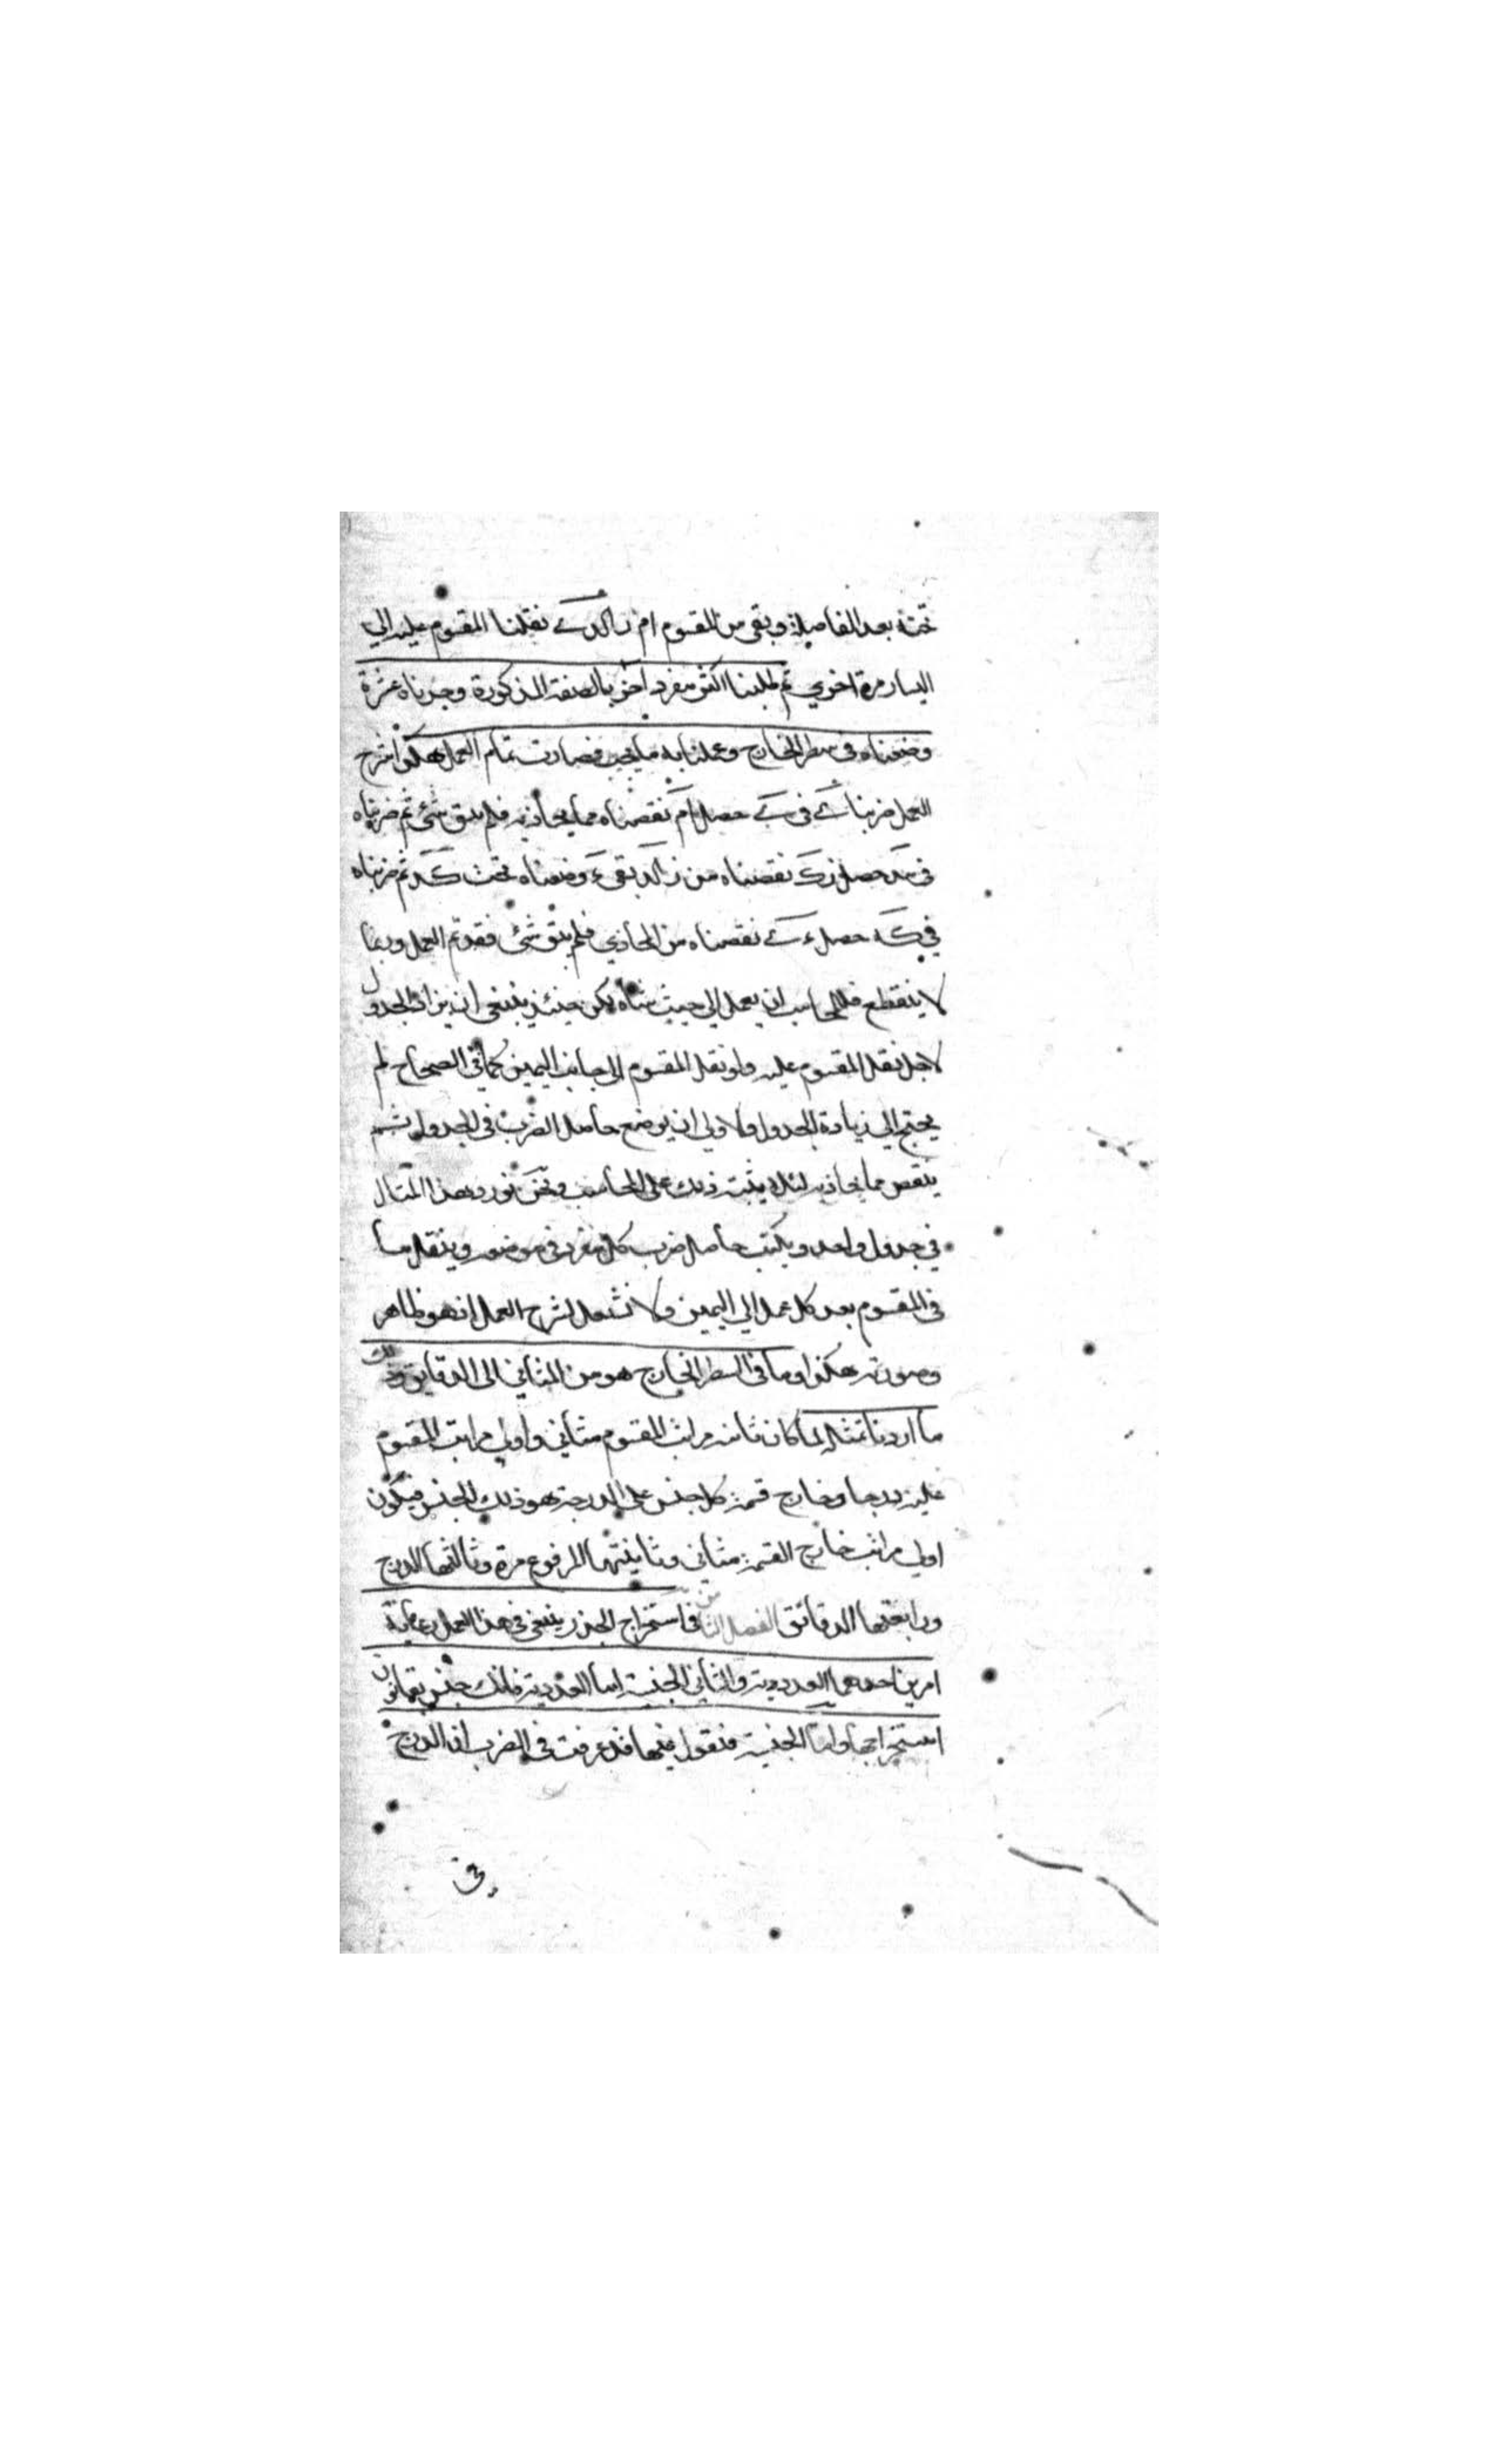 تحته بعد الفاصلة وبقى من المقسوم ام ر الد ك نقلنا المقسوم عليه الي
اليسار مرة اخري ثم طلبنا اكثر مفرد اخر بالصفة المذكورة وجدناه عشرة
وضعناه في سطر الخارج وعملنا به ما يجب فصارت تمام العمل هكذا شرح
العمل ضربنا في حصل ام نقصناه مما يحاذيه فلم يبق شئ ثم ضربناه
في حصل نقصناه من بقي وضعناه تحت ثم ضربناه
في كه حصل نقصناه من المحاذي فلم يبق شئ فقد تم العمل وربما
لا ينقطع فللمحاسب ان يعمل الي حيث شاء لكن حينئذ ينبغي ان يزاد الجدول
لاجل نقل المقسوم عليه ولو نقل المقسوم الى جانب اليمين كما في الصحاح لم
يحتج الي زيادة الجدول والاولي ان يوضع حاصل الضرب في الجدول ثم
ينقص مما يحاذيه لئلا يشتبه ذلك على المحاسب ونحن نورد هذا المثال
في جدول واحد ويكتب حاصل ضرب كل مفرد في موضعه وينقل ما
في المقسوم بعد كل عمل الي اليمين ولا نشتغل بشرح العمل اذ هو ظاهر
وصورته هكذا وما في السطر الخارج هو من المثاني الى الدقايق وذلك
ما اردنا تمثله لما كان ثانيه مراتب المقسوم مثاني واولي مراتب المقسوم
عليه درجا وخارج قسمة كل جنس على الدرجة هو ذلك الجنس فيكون
اولي مراتب خارج القسمة مثاني وثانيتها المرفوع مرة وثالثتها الدرج
ورابعتها الدقائق الفصل الثامن في استخراج الجذر ينبغي في هذا العمل رعاية
امرين احدهما العددية والثاني الجنسية اما العددية فلذلك جنس بقانون
استخراجها واما الجنسية فنقول فيها قد عرفت في الضرب ان الدرج
في